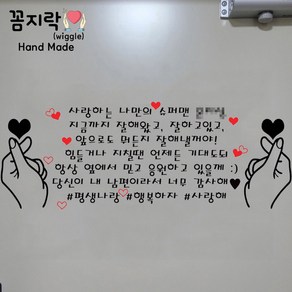 꼼지락
(wiggle)
Hand Made
사랑하는 나만의 스퍼맨
지금까지 잘해왔고, 잘하고있고,
앞으로도 뭐든지 잘해낼꺼야!
힘들거나 지칠땐 언제든 기대도돼
항상 옆에서 믿고 응원하고 있을께 :)
당신이 내 남편이라서 너무 감사해
#평생나랑 #행복하자 #사랑해